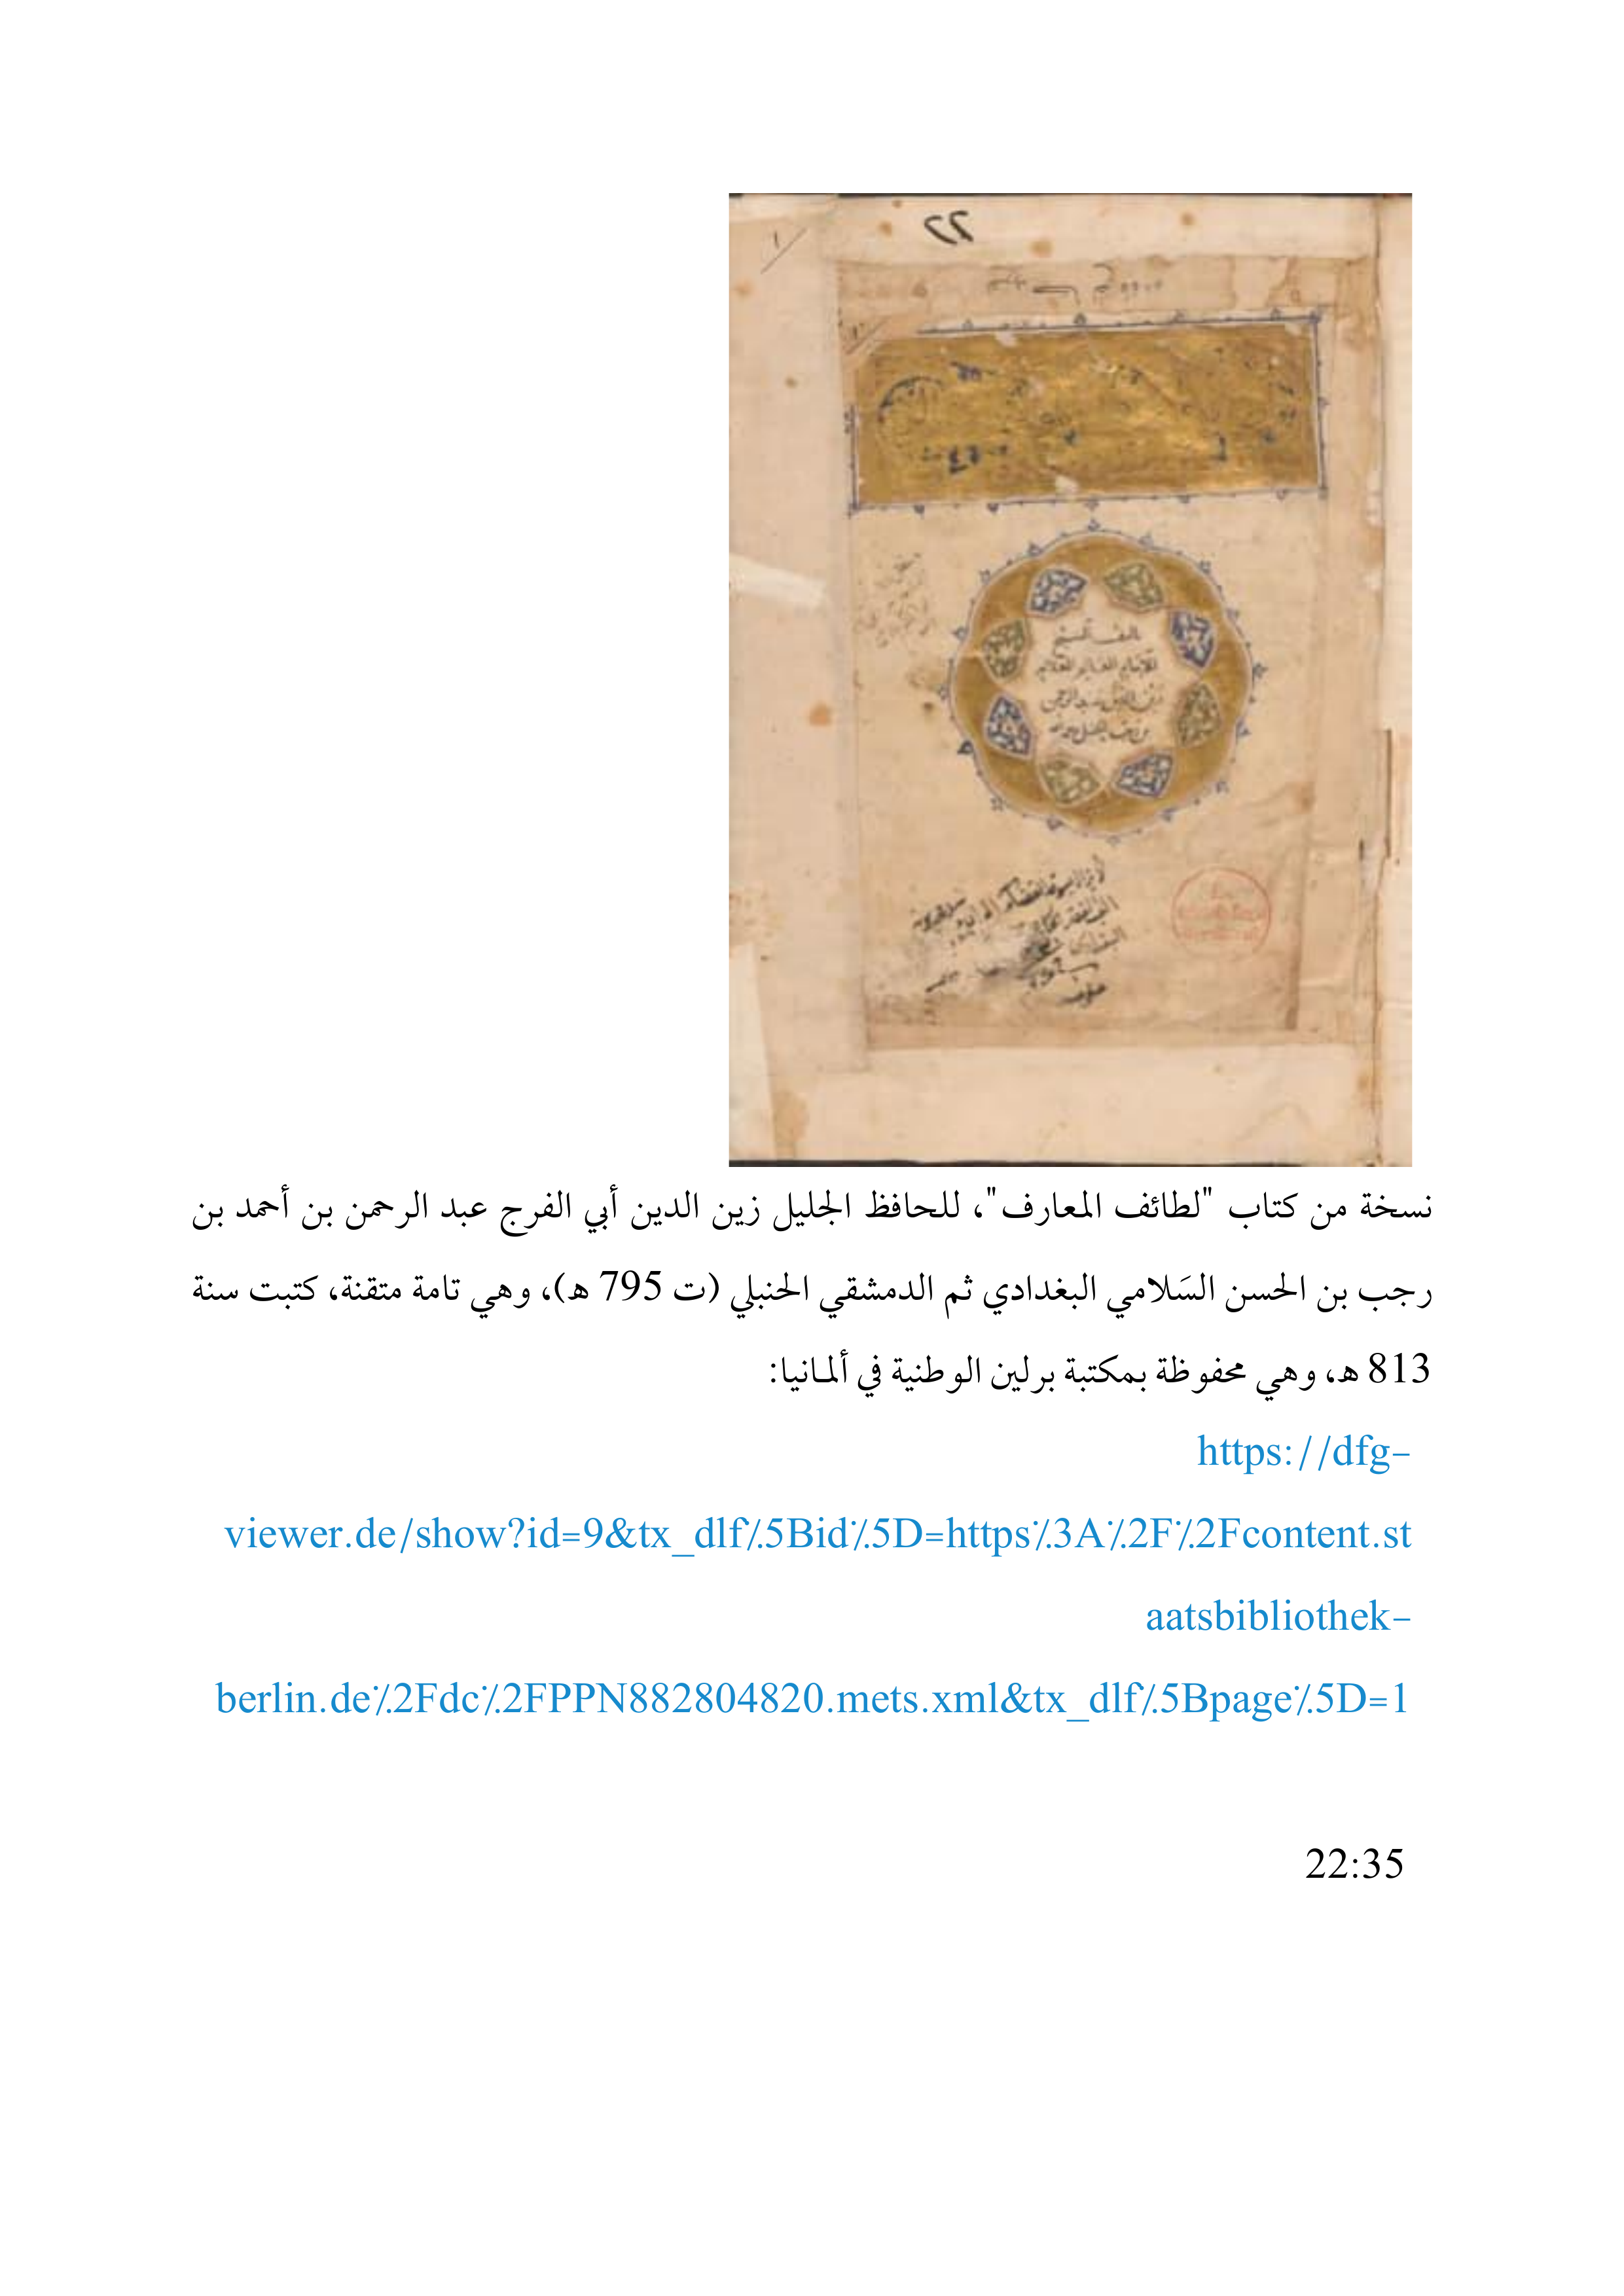 22
١
تأليف الشيخ
الإمام العالم العلامة
زين الدين عبد الرحمن
بن رجب الحنبلي
نسخة من كتاب "لطائف المعارف"، للحافظ الجليل زين الدين أبي الفرج عبد الرحمن بن أحمد بن
رجب بن الحسن السَلامي البغدادي ثم الدمشقي الحنبلي (ت 795 ه)، وهي تامة متقنة، كتبت سنة
813 ه، وهي محفوظة بمكتبة برلين الوطنية في ألمانيا:
https://dfg-
viewer.de/show?id=9&tx_dlf٪5Bid٪5D=https٪3A٪2F٪2Fcontent.st
aatsbibliothek-
berlin.de٪2Fdc٪2FPPN882804820.mets.xml&tx_dlf٪5Bpage٪5D=1
22:35